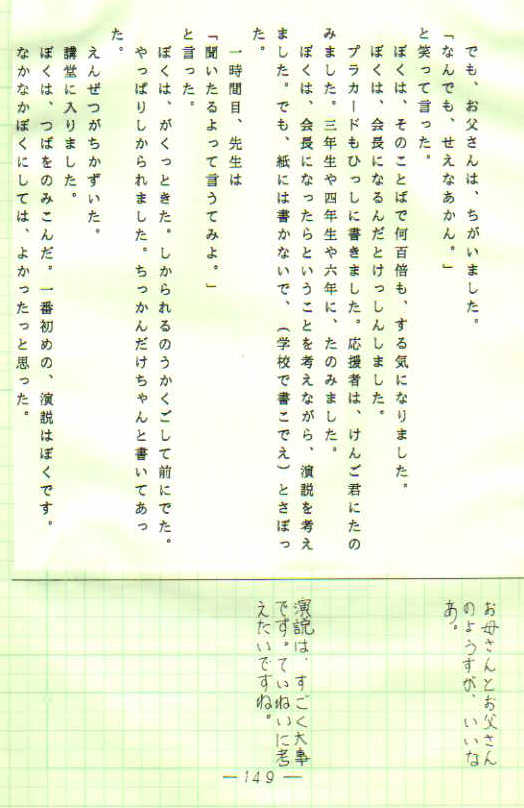 でも、お父さんは、ちがいました。
「なんでも、せえなあかん。」
と笑って言った。
ぼくは、そのことばで何百倍も、する気になりました。
ぼくは、会長になるんだとけっしんしました。
プラカードもひっしに書きました。応援者は、けんご君にたの
みました。三年生や四年生や六年に、たのみました。
ぼくは、会長になったらということを考えながら、演説を考え
ました。でも、紙には書かないで、(学校で書こでえ)とさぼっ
た。
一時間目、先生は
「聞いたるよって言うてみよ。」
と言った。
ぼくは、がくっときた。しかられるのうかくごして前にでた。
やっぱりしかられました。ちっかんだけちゃんと書いてあっ
た。
えんぜつがちかずいた。
講堂に入りました。
ぼくは、つばをのみこんだ。一番初めの、演説はぼくです。
なかなかぼくにしては、よかったっと思った。
お母さんとお父さん
のようすが、いいな
あ。
演説は、すごく大事
です。ていねいに考
えたいですね。
—149—